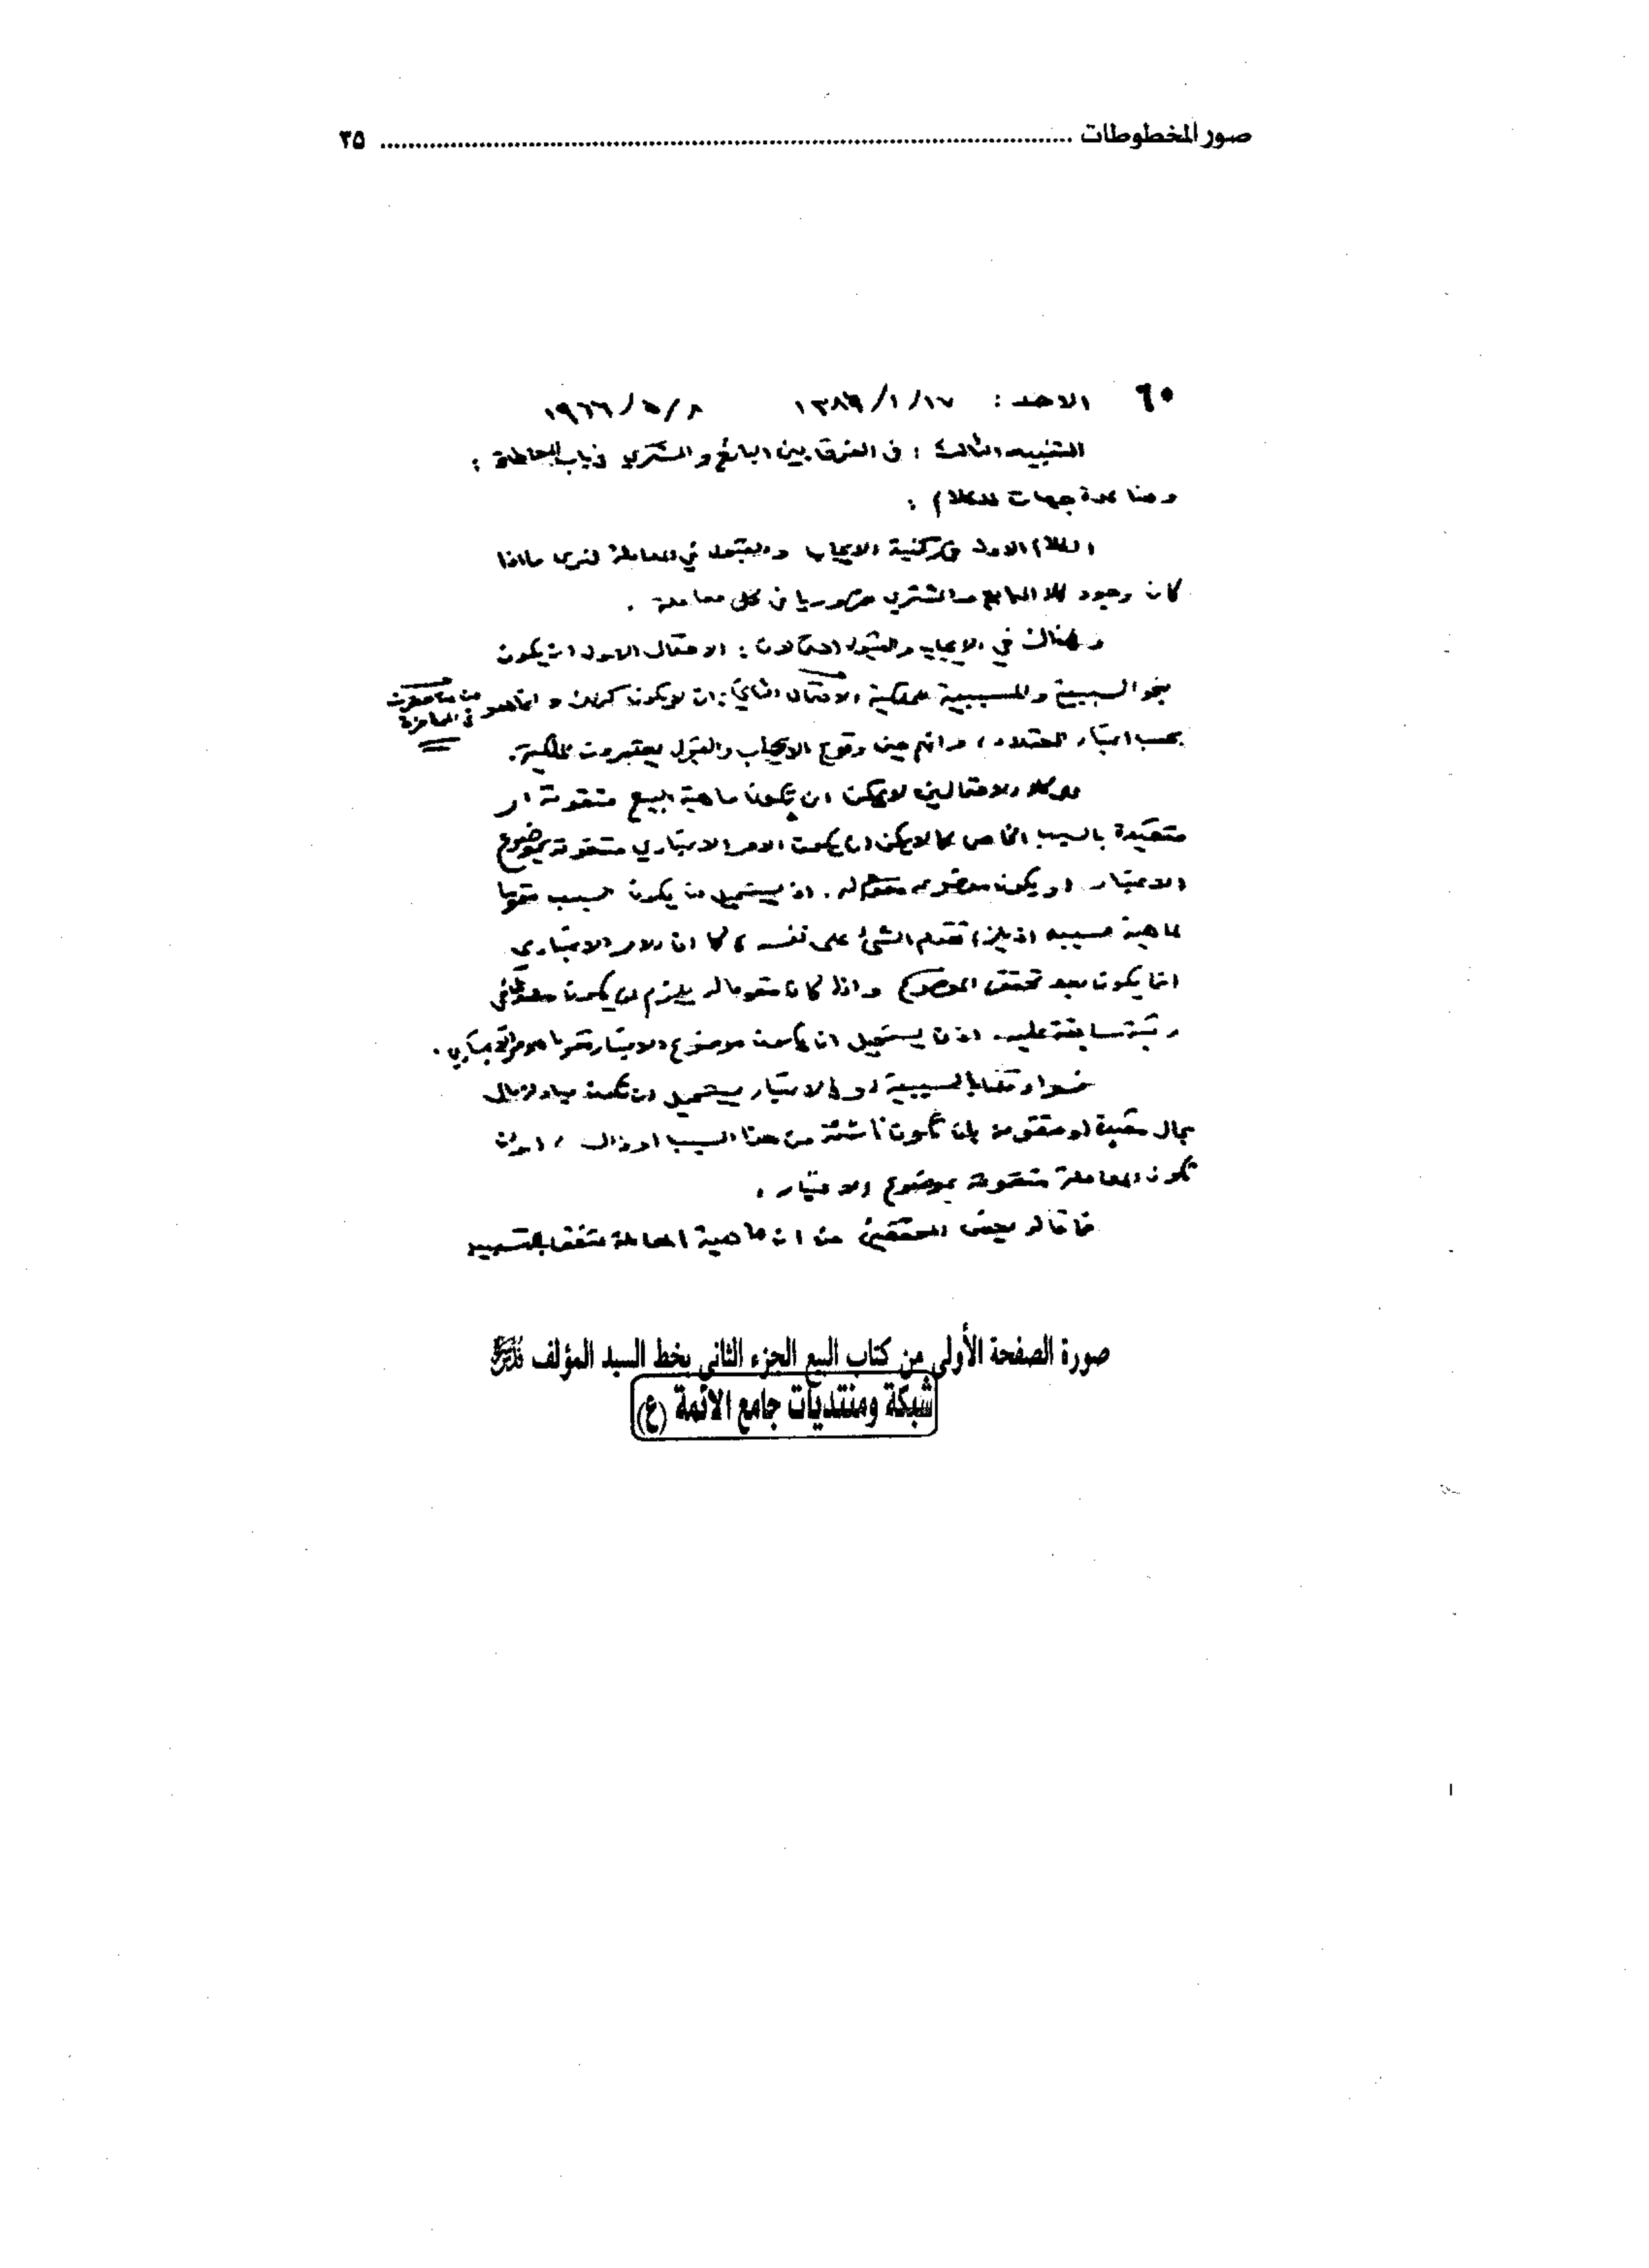 صور المخطوطات ........ ٣٥
٦٠ الاحد : ١٣٨٦/١/١٧ ١٩٦٦/٥/٨
التنبيه الثالث : في الفرق بين البائع والمشتري في باب المعاطاة :
وهنا عدة جهات للكلام :
الكلام الاول في ركنية الايجاب والقبول في المعاملة لنرى ماذا
كان وجود كلا البايع والمشتري ضروريا في كل معاملة .
وهناك في الايجاب والقبول احتمالان : الاحتمال الاول ان يكون
بنحو السببية والمسببية للملكية الاحتمال الثاني : ان لا يكون كذلك و انما هو
في المحاضرة
بحسب اعتبار العقلاء ، وانهم حين وقوع الايجاب والقبول يعتبرون الملكية .
وكلا الاحتمالين لا يمكن ان تكون ماهية البيع متقومة او
متقيدة بالسبب الخاص كما لا يمكن ان يكون الامر الاعتباري متقومة بموضوع
الاعتبار او يكون موضوعه مقوما له . اذ يستحيل ان يكون السبب مقوما
لماهية مسببه اذ يلزم تقدم الشئ على نفسه ، كما ان الامر الاعتباري
انما يكون بعد تحقق الموضوع واذا كان مقوما له يلزم ان يكون في
رتبة سابقة عليه . اذن يستحيل ان يكون موضوع الاعتبار مقوما
سواء قلنا بالسببية او الاعتبار يستحيل ان تكون مبادلة مال
بمال مقيدة او متقومة بان تكون ناشئة من هذا السبب او ذاك ، او ان
تكون المعاملة متقومة بموضوع الاعتبار .
فما قاله بعض المحققين من ان ماهية المعاملة
صورة الصفحة الأولى من كتاب البيع الجزء الثاني بخط السيد المؤلف قدس سره
شبكة ومنتديات جامع الائمة (ع)